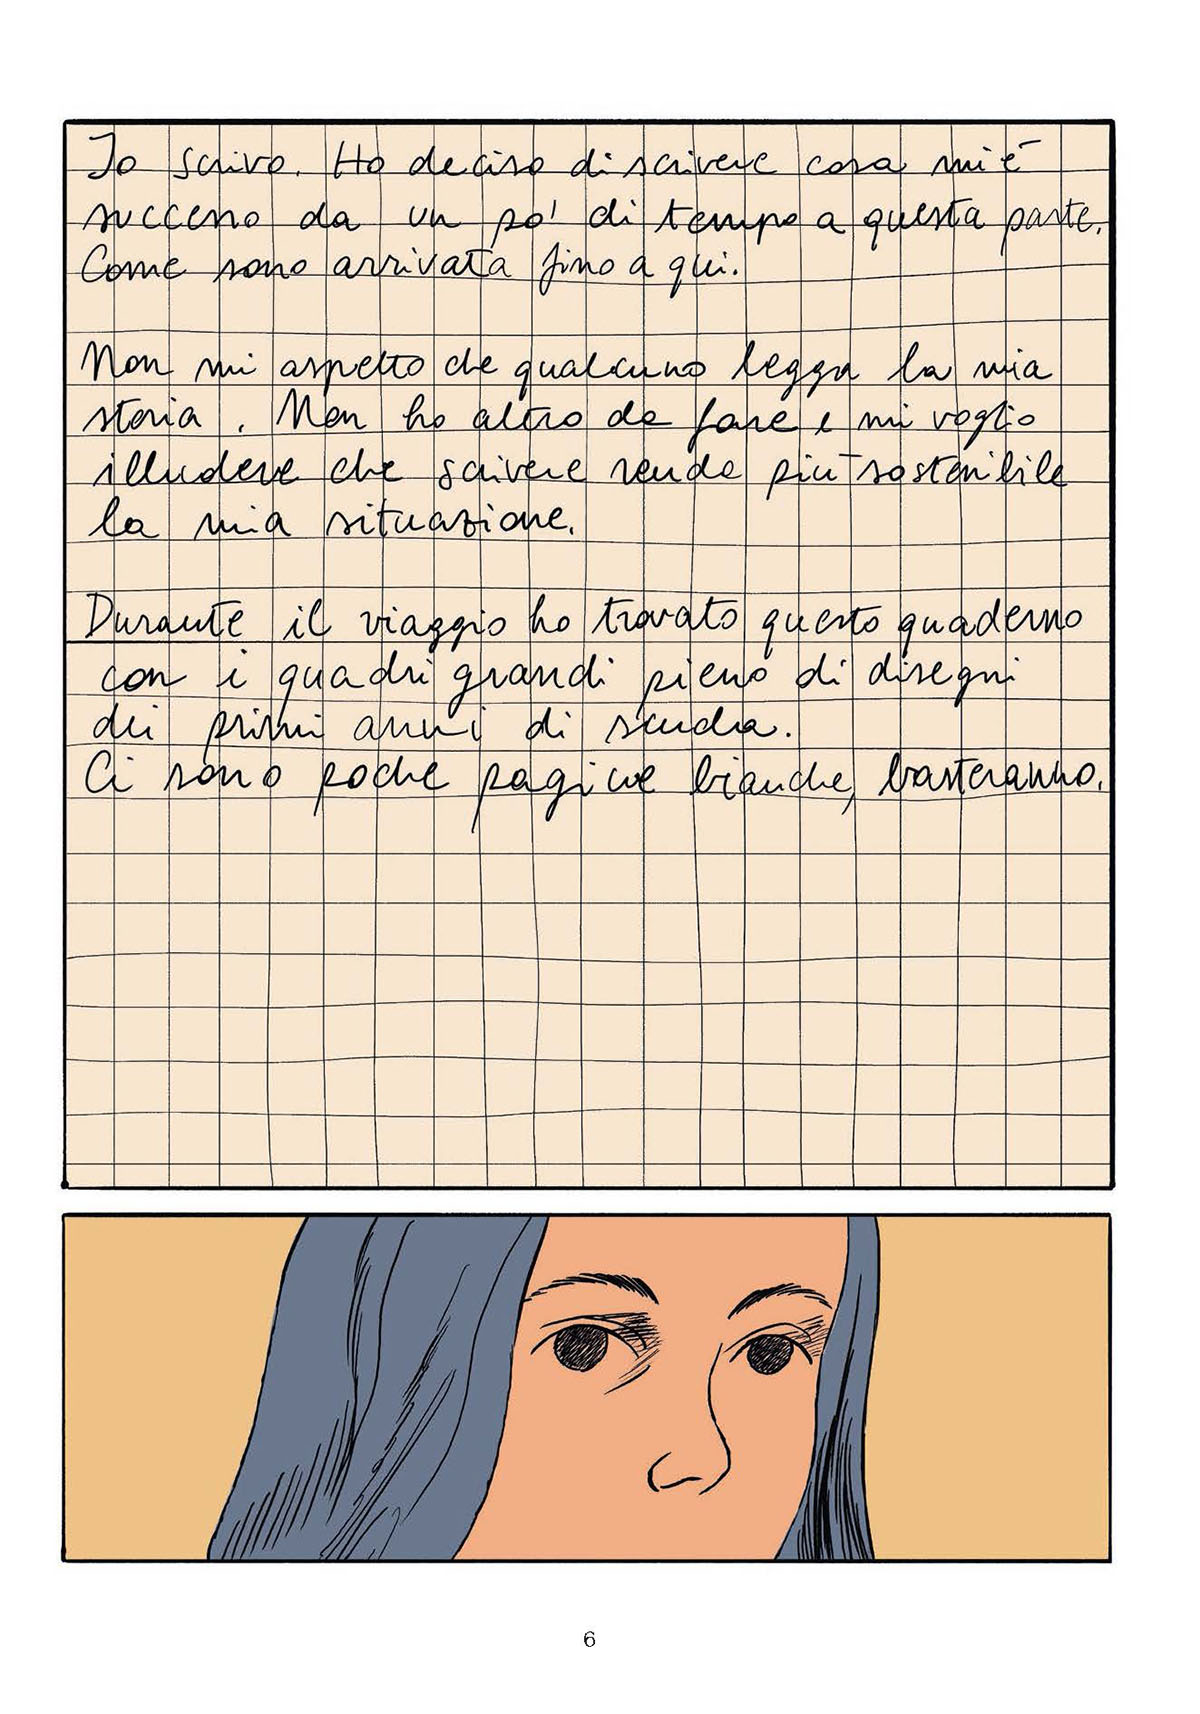 Io scrivo. Ho deciso di scrivere cosa mi è
successo da un po' di tempo a questa parte.
Come sono arrivata fino a qui.
Non mi aspetto che qualcuno legga la mia
storia. Non ho altro da fare e mi voglio
illudere che scrivere renda più sostenibile
la mia situazione.
Durante il viaggio ho trovato questo quaderno
con i quadri grandi pieno di disegni
dei primi anni di scuola.
Ci sono poche pagine bianche, basteranno.
6